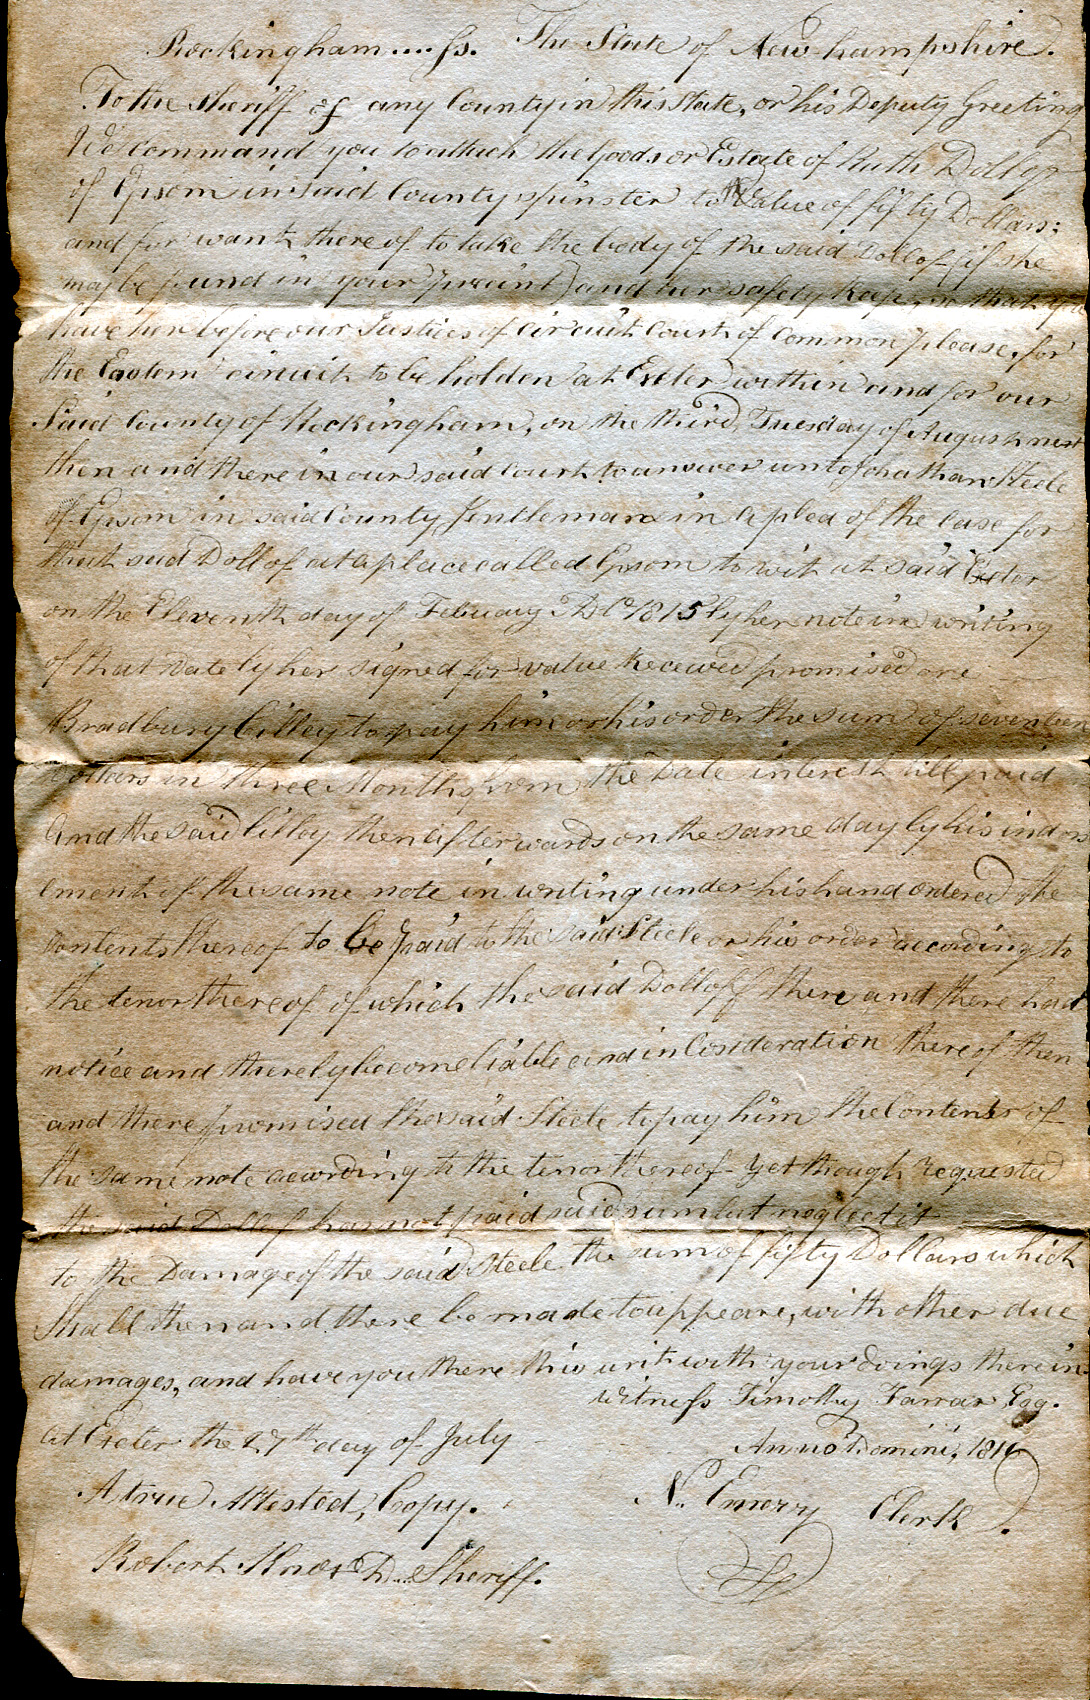 Rockingham....ss. The State of New-hampshire.
To the Sheriff of any County in this State, or his Deputy Greeting
We Command you to attach the Goods or Estate of Ruth Dollof
of Epsom in said County spinster to the Value of fifty Dollars:
and for want there of to take the body of the said Dollof (if she
may be found in your precinct) and her safely keep, so that you
have her before our Justices of circuit Court of Common please, for
the Eastern circuit to be holden at Exeter within and for our
Said County of Rockingham, on the third Tuesday of August next
then and there in our said Court to answer unto Johathan Steele
of Epsom in said County, Gentleman in a plea of the Case for
that said Dollof at a place called Epsom to wit at said Exeter
on the Eleventh day of Febuary AD 1815 by her note in writing
of that Date by her signed for value Received promised one
Bradbury Cilley to pay him or his order the sum of seventeen
Dollars in three Months from the Date interest till paid
And the said Cilley then afterwards on the same day by his indors
ement of the same note in writing under his hand ordered the
Contents thereof to be paid to the said Steele or his order according to
the tenor there of of which the said Dolloff then and there had
notice and thereby become liable and in Cosideration there of then
and there promised the said Steele to pay him the Contents of
the same note according to the tenor there of - yet though Requested
the said Dollof has not paid said sum but neglect it
to the Damage of the said Steele the sum of fifty Dollars which
Shall then and there be made to appeare, with other due
damages, and have you there this writ with your doings therein.
Witness Timothy Farrar Esq.
At Exeter the 27th day of July
Anno Domini, 1816
A true Attested, Copy.
N. Emery Clerk.
Robert Knox D. Sheriff.